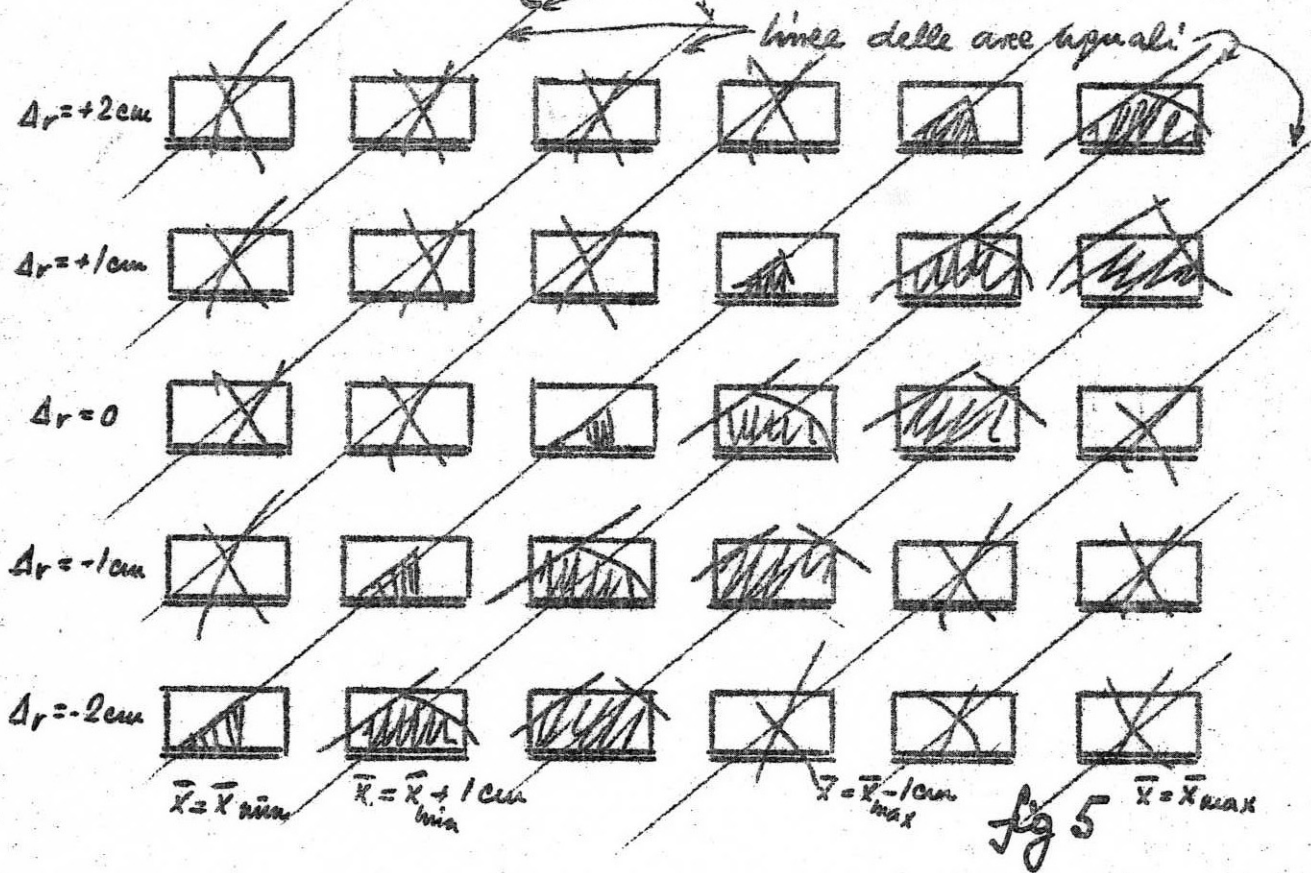 linee delle aree uguali
Δr=+2cm
Δr=+1cm
Δr=0
Δr=-1cm
Δr=-2cm
x̄=x̄min
x̄=x̄min+1cm
x̄=x̄max-1cm
x̄=x̄max
fig 5